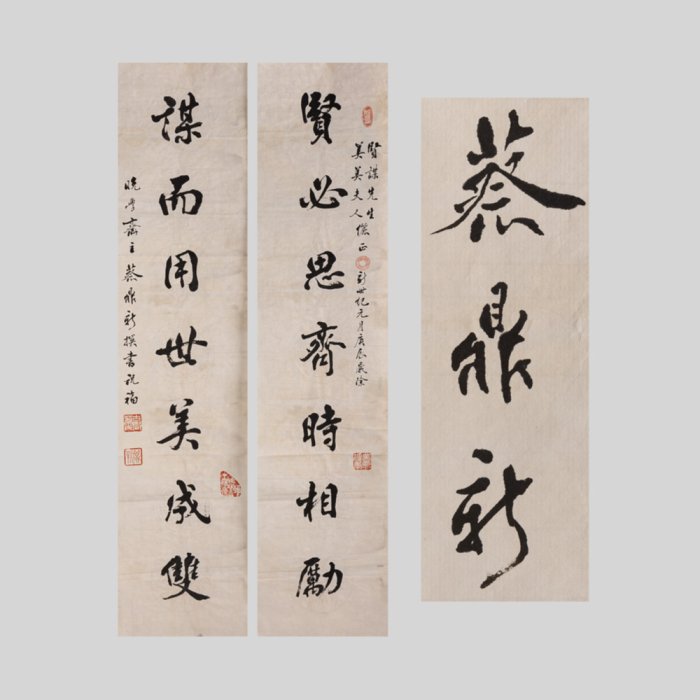 賢必思齊時相勵
賢謀先生
美美夫人儷正
新世紀元月庚辰歲除
謀而用世美成雙
晚學齋主蔡鼎新撰書祝福
蔡鼎新